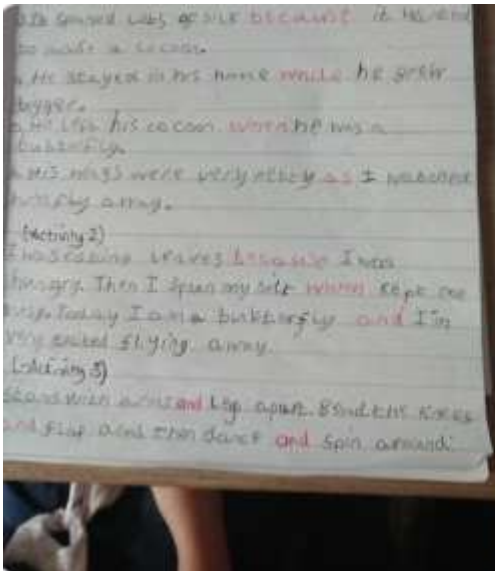 of silk because it
to make a cocoon.
He stayed in his home while he grew
bigger.
He left his cocoon when he was a
butterfly.
His wings were very as I watched
him fly away.
(Activity 2)
I was eating leaves because I was
hungry. Then I spun my silk when
Today I am a buktterfly and I'm
very flying away.
(Activity 3)
Stand with arms and leg apart. Bend the knees
and flap and then dance and spin around.